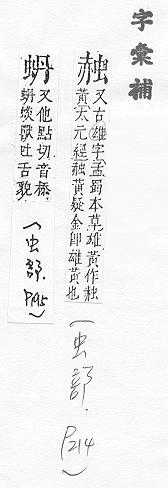 字彙補
赨 又古雄字孟蜀本草雄黃作赨
黃太元經赨黃疑金卽雄黃也
(虫部.P214)
蚦 又他點切音忝
蚦獸吐舌貌
(虫部.P195)